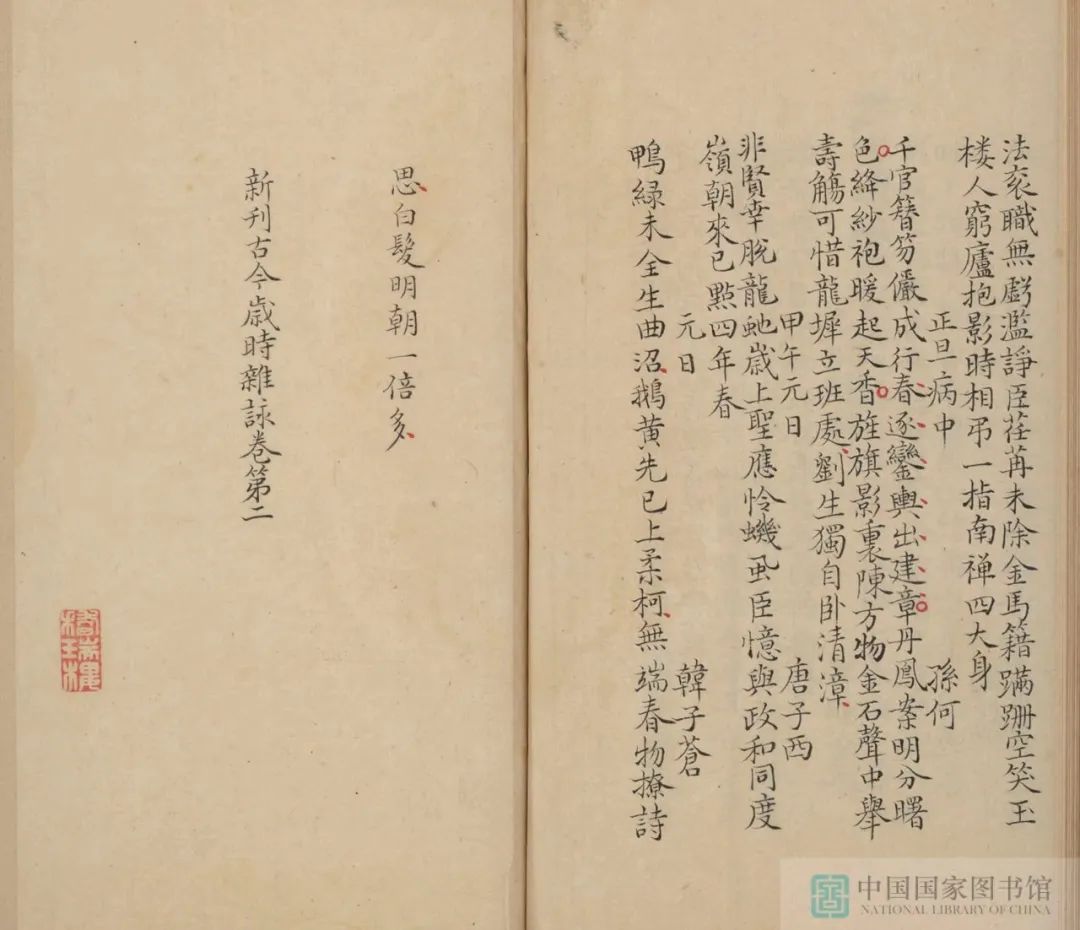 法衮職無虧濫諍臣荏苒未除金馬籍蹣跚空笑玉
楼人窮廬抱影時相弔一指南禅四大身
正旦病中 孫何
千官簪笏儼成行春逐鑾輿出建章丹鳳案明分曙
色絳紗袍暖起天香旌旗影裏陳方物金石聲中舉
壽觴可惜龍墀立班處劉生獨自卧清漳
甲午元日 唐子西
非賢幸脫龍虵歲上聖應怜蟣虱臣憶與政和同度
嶺朝來已點四年春
元日 韓子蒼
鴨緑未全生曲沼鵝黄先已上柔柯無端春物撩詩
思白髮明朝一倍多
新刊古今歲時雜詠卷第二
中国国家图书馆
NATIONAL LIBRARY OF CHINA